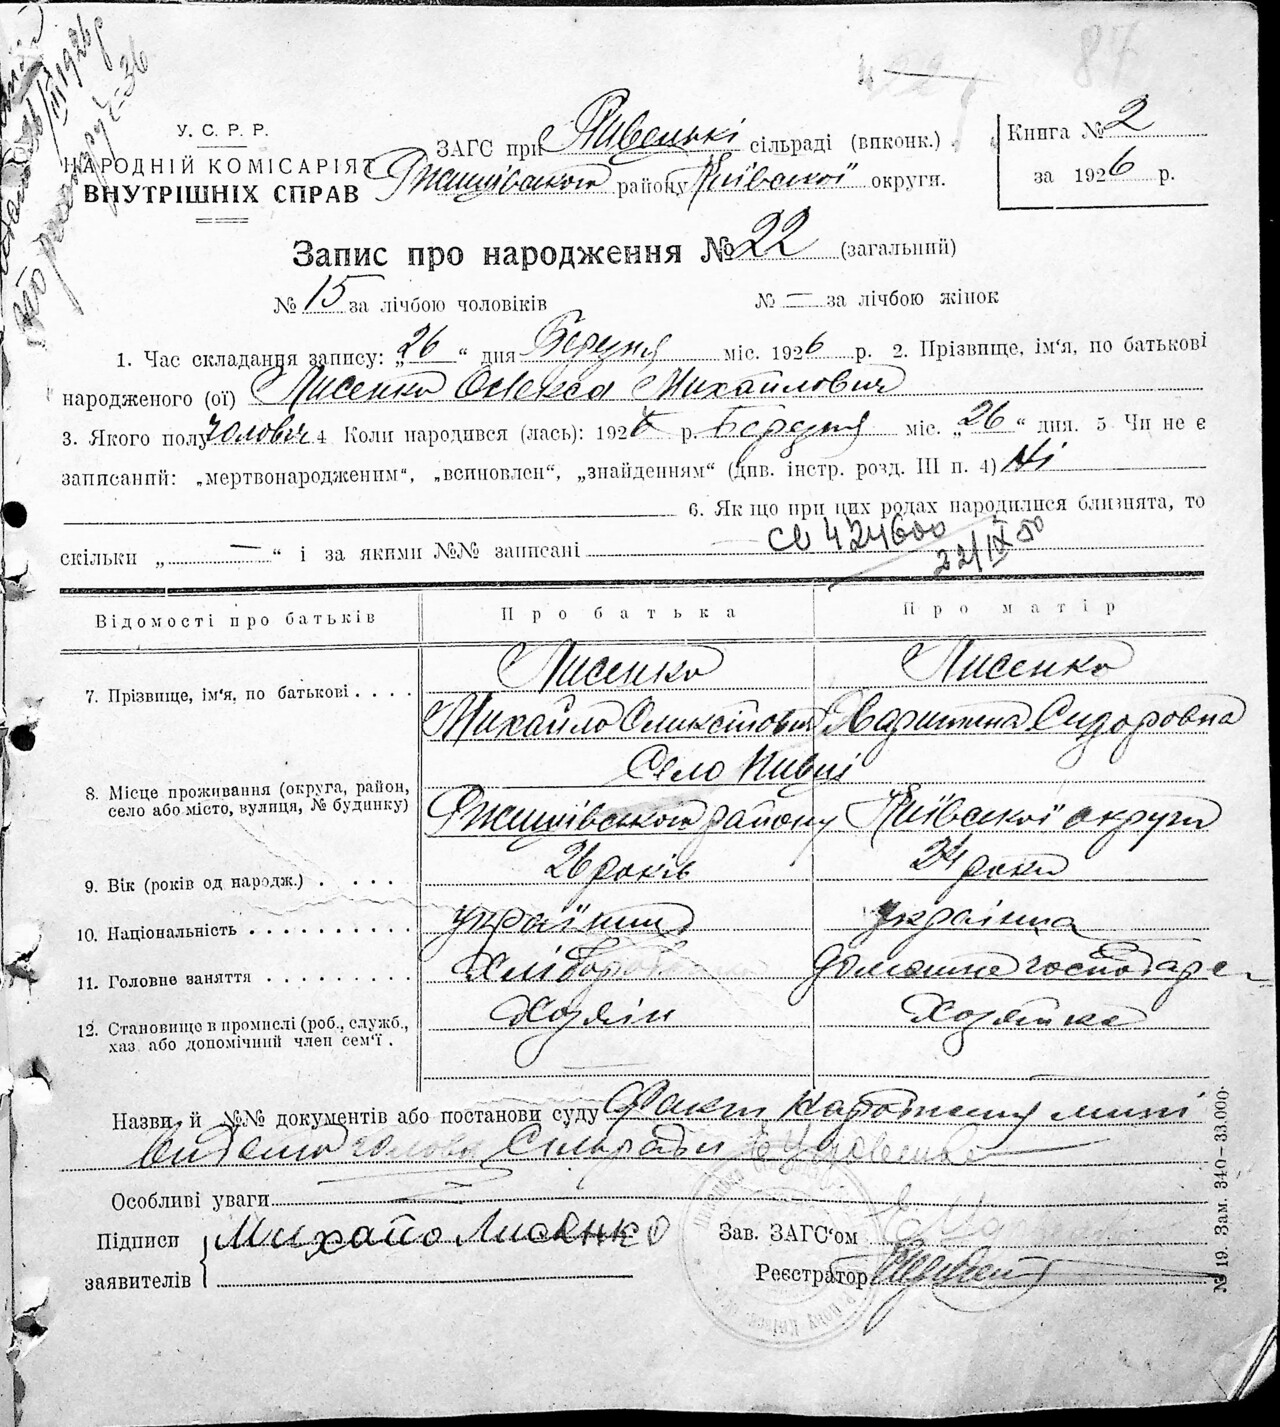 87
У. С. Р. Р.
НАРОДНІЙ КОМІСАРІЯТ
ВНУТРІШНІХ СПРАВ
ЗАГС при сільраді (виконк.)
Ржищівського району Київської округи.
Книга № 2
за 1926 р.
Запис про народження № 22 (загальний)
№ 15 за лічбою чоловіків № — за лічбою жінок
1. Час складання запису: „26“ дня Березня міс. 1926 р. 2. Прізвище, ім'я, по батькові
народженого (ої) Лисенко Олекса Михайлович
3. Якого полу чолович 4 Коли народився (лась): 1926 р. Березня міс. „26“ дня. 5 Чи не є
записаний: „мертвонародженим“, „всиновлен“, „знайденням“ (див. інстр. розд. III п. 4) Ні
6. Як що при цих родах народилися близнята, то
скільки „ — “ і за якими №№ записані
св 424600
22/IX 50
Відомості про батьків Про батька Про матір
7. Прізвище, ім'я, по батькові . . . . Лисенко Лисенко
Михайло Харитина Сидоровна
8. Місце проживання (округа, район, село або місто, вулиця, № будинку) Село Півці
Ржищівського району Київської округи
9. Вік (років од народж.) . . . . . 26 років 24 роки
10. Національність . . . . . . . . . . українец українка
11. Головне заняття . . . . . . . . . Хлібороб домашнє господарс
12. Становище в промислі (роб., служб., хаз. або допомічний член сем'ї . Хозяїн Хозяйка
Назви й №№ документів або постанови суду Факт народження мині
видомо голова Сільради
Особливі уваги
Підписи заявителів Михайо Лисенко
Зав. ЗАГС'ом
Реєстратор
№ 19. Зам. 340–33.000.